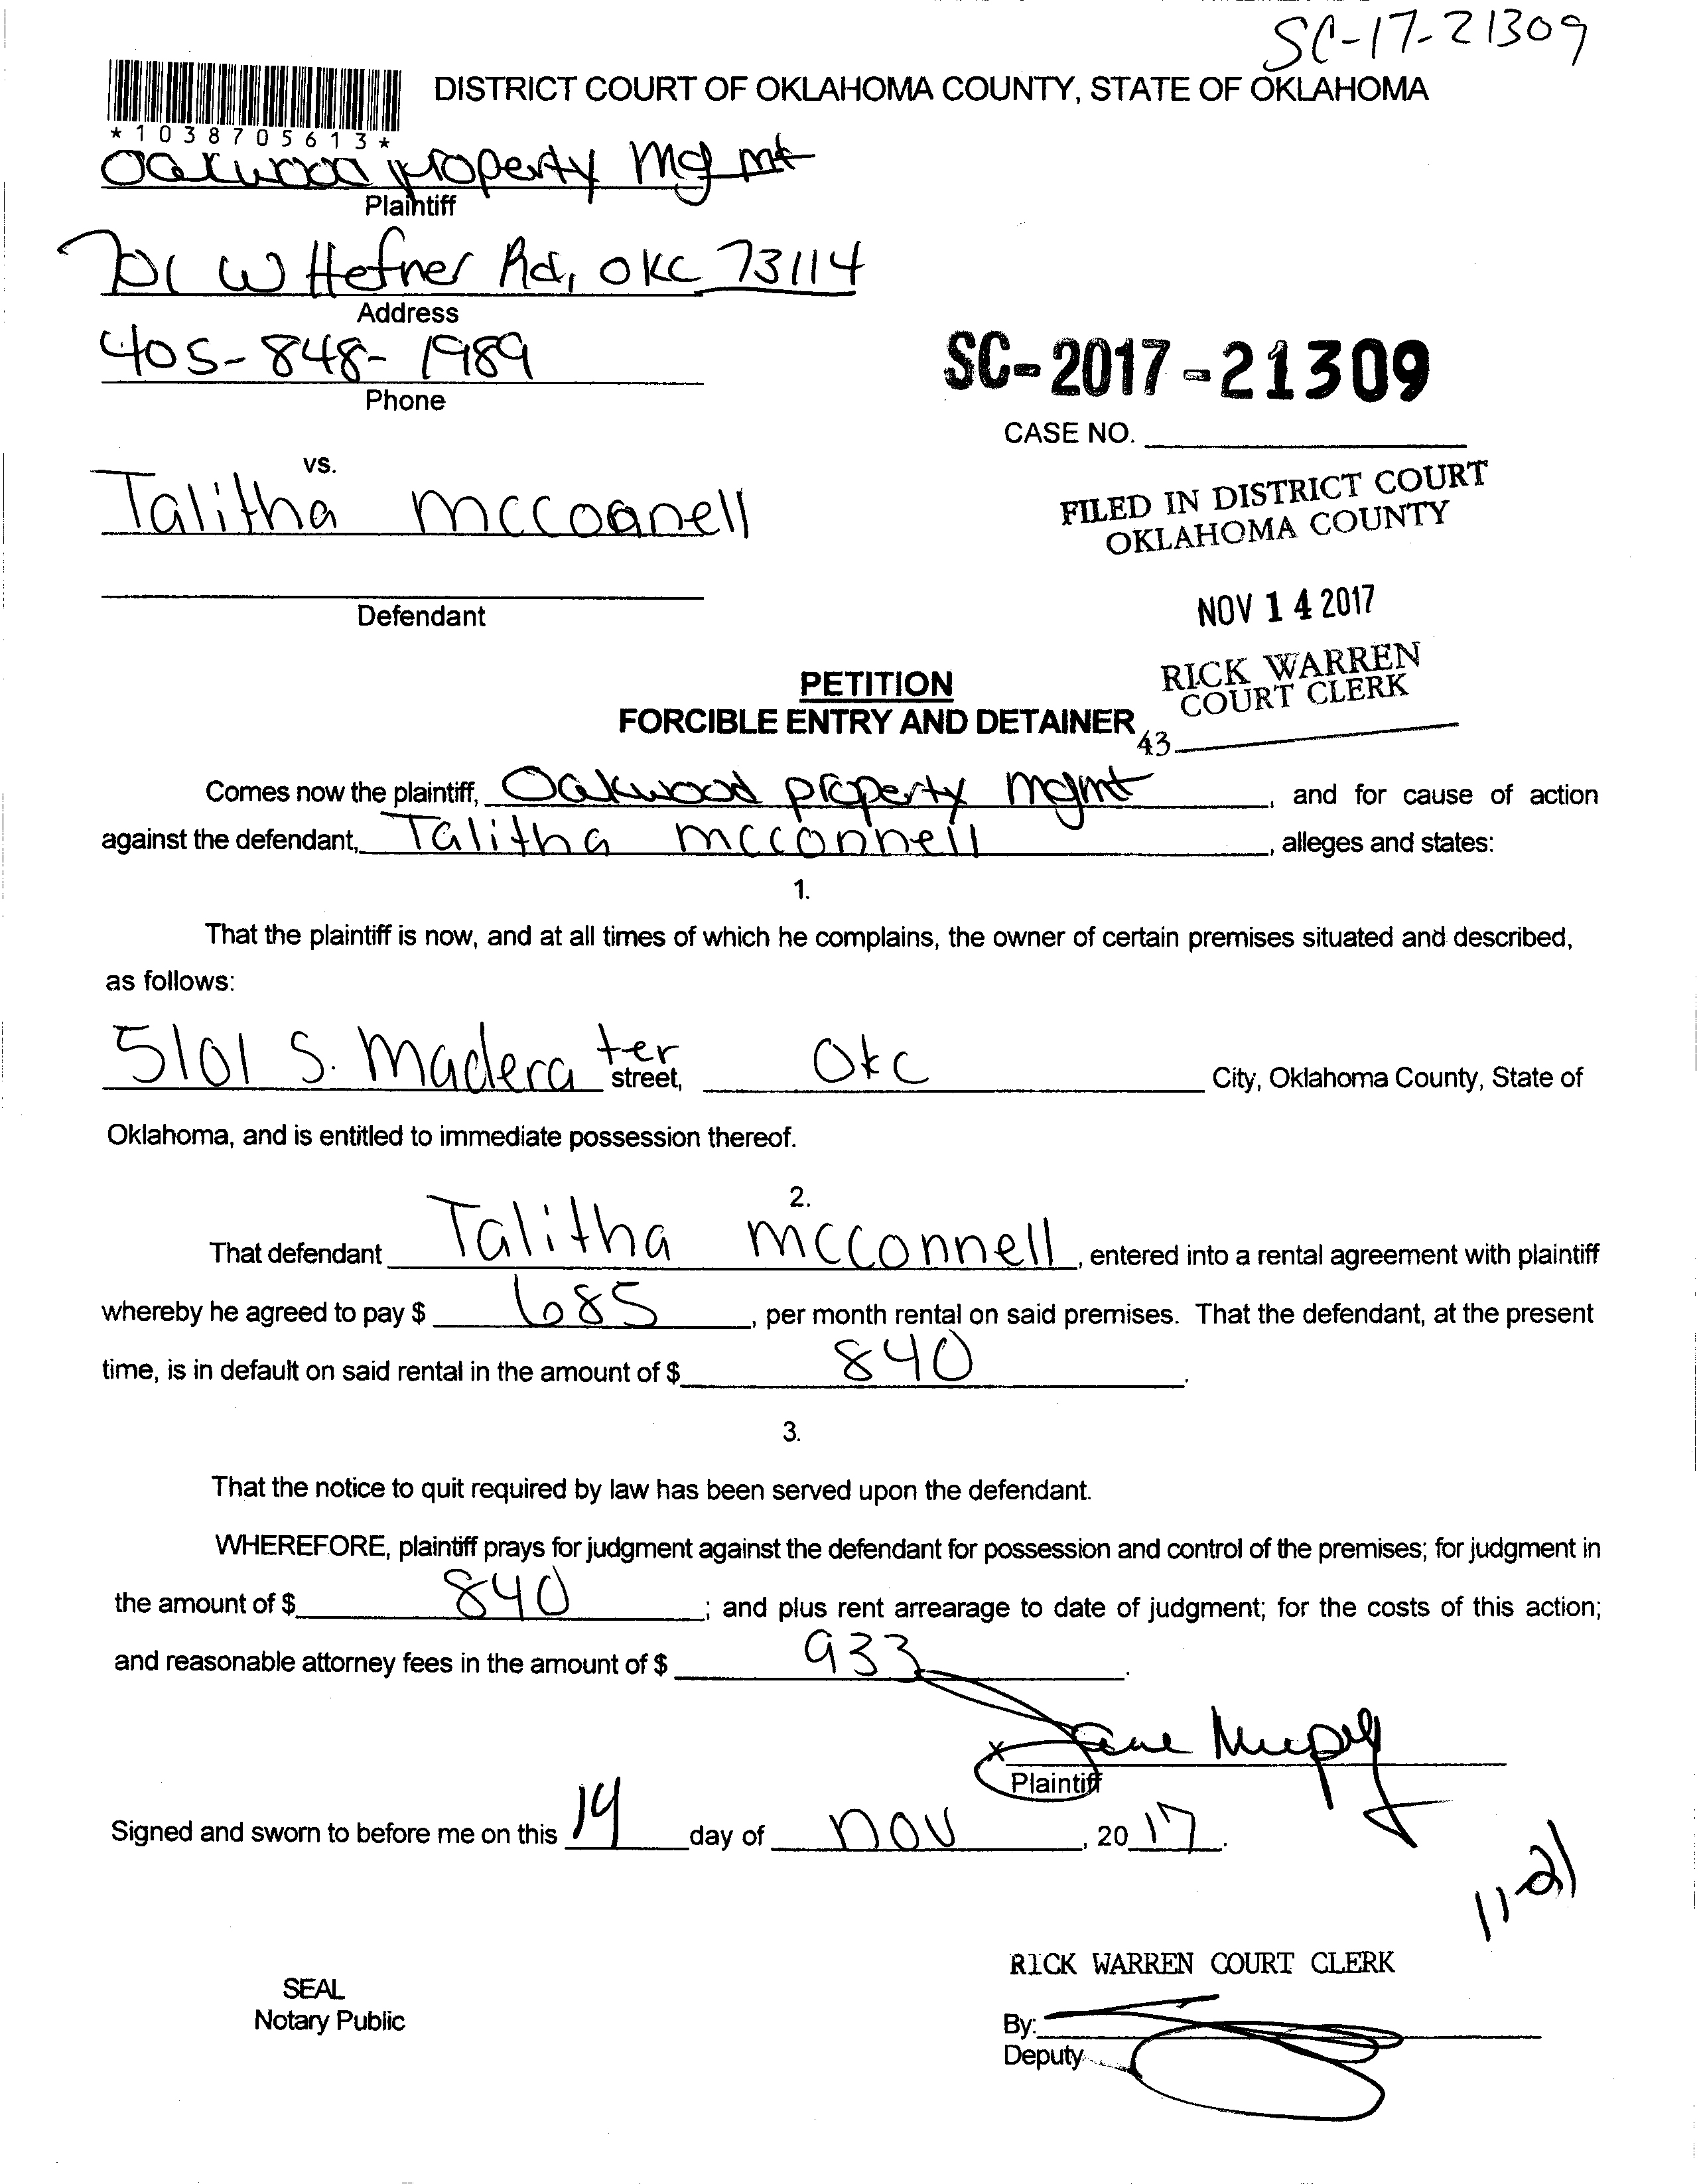 SC-17-21309
DISTRICT COURT OF OKLAHOMA COUNTY, STATE OF OKLAHOMA
*1038705613*
Oakwood property Mgmt
Plaintiff
701 W Hefner Rd, OKC 73114
Address
405-848-1989
Phone
SC-2017-21309
CASE NO.
vs.
Talitha mcconnell
FILED IN DISTRICT COURT
OKLAHOMA COUNTY
Defendant
NOV 14 2017
RICK WARREN
COURT CLERK
PETITION
FORCIBLE ENTRY AND DETAINER
43
Comes now the plaintiff, Oakwood property mgmt, and for cause of action
against the defendant, Talitha mcconnell, alleges and states:
1.
That the plaintiff is now, and at all times of which he complains, the owner of certain premises situated and described,
as follows:
5101 S. Madera ter street, Okc City, Oklahoma County, State of
Oklahoma, and is entitled to immediate possession thereof.
2.
That defendant Talitha mcconnell, entered into a rental agreement with plaintiff
whereby he agreed to pay $ 685, per month rental on said premises. That the defendant, at the present
time, is in default on said rental in the amount of $ 840.
3.
That the notice to quit required by law has been served upon the defendant.
WHEREFORE, plaintiff prays for judgment against the defendant for possession and control of the premises; for judgment in
the amount of $ 840; and plus rent arrearage to date of judgment; for the costs of this action;
and reasonable attorney fees in the amount of $ 933.
x
Plaintiff
Signed and sworn to before me on this 14 day of nov, 2017.
11-21
RICK WARREN COURT CLERK
SEAL
Notary Public
By:
Deputy